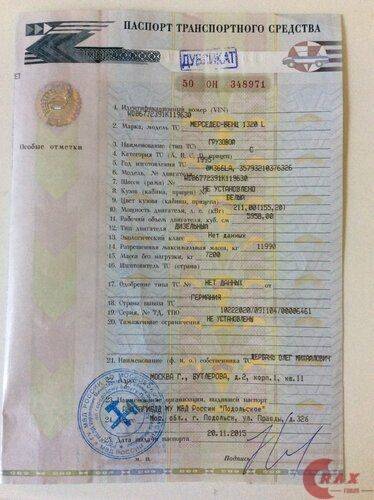 ПАСПОРТ ТРАНСПОРТНОГО СРЕДСТВА
ДУБЛИКАТ
50 ОН 348971
Особые отметки
1. Идентификационный номер (VIN)
WDB6772391K119630
2. Марка, модель ТС МЕРСЕДЕС-БЕНЦ 1320 L
3. Наименование (тип ТС) ГРУЗОВОЙ
4. Категория ТС (A, B, C, D, прицеп) C
5. Год изготовления ТС 1995
6. Модель, № двигателя OM366LA, 35793210376326
7. Шасси (рама) № WDB6772391K119630
8. Кузов (кабина, прицеп) № НЕ УСТАНОВЛЕНО
9. Цвет кузова (кабины, прицепа) БЕЛЫЙ
10. Мощность двигателя, л. с. (кВт) 211,00(155,20)
11. Рабочий объем двигателя, куб. см 5958,00
12. Тип двигателя ДИЗЕЛЬНЫЙ
13. Экологический класс Нет данных
14. Разрешенная максимальная масса, кг 11990
15. Масса без нагрузки, кг 7200
16. Изготовитель ТС (страна)
17. Одобрение типа ТС № НЕТ ДАННЫХ
18. Страна вывоза ТС ГЕРМАНИЯ
19. Серия, № ТД, ТПО 10222020/091104/00006461
20. Таможенные ограничения НЕ УСТАНОВЛЕНЫ
21. Наименование (ф. и. о.) собственника ТС ДЕРБАНЬ ОЛЕГ МИХАЙЛОВИЧ
22. Адрес МОСКВА Г., БУТЛЕРОВА, д.2, корп.1, кв.11
23. Наименование организации, выдавшей паспорт
ГИБДД МУ МВД России "Подольское"
24. Адрес Мос. обл., г. Подольск, ул. Правды, д.32б
25. Дата выдачи паспорта 20.11.2015
М. П.
Подпись
CRAX